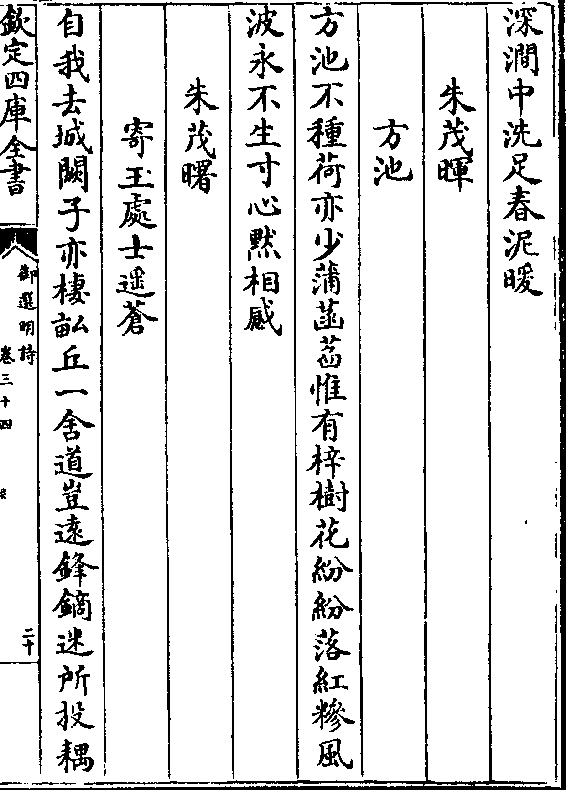 深澗中洗足春泥暖
朱茂暉
方池
方池不種荷亦少蒲菡萏惟有梓樹花紛紛落紅糝風
波永不生寸心默相感
朱茂曙
寄王處士遥蒼
自我去城闕子亦棲畝丘一舍道豈遠鋒鏑迷所投耦
欽定四庫全書
御選明詩
卷三十四
二十